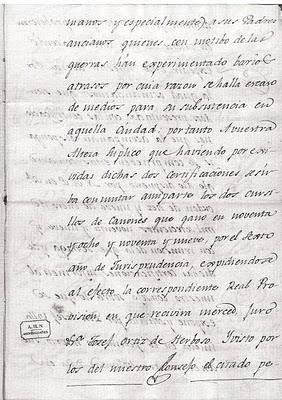 manos y especialmente a sus Padres
ancianos quienes con motibo de las
guerras han experimentado barios
atrasos por cuia razon se halla escaso
de medios para su subsistencia en
aquella Ciudad: por tanto A vuestra
Alteza sup.co que haviendo por exi-
vidas dichas dos Certificaciones se sir-
ba conmutar a mi parte los dos cursi-
llos de Canones que ganó en noventa
y ocho y noventa y nueve, por el sexto
año de Jurisprudencia, expidiendose
al efecto la correspondiente Real Pro-
vision, en que recivira merced, juro
Josef Ortiz de Herboso. Y visto por
los del nuestro Consejo el citado pe-
A.H.N.